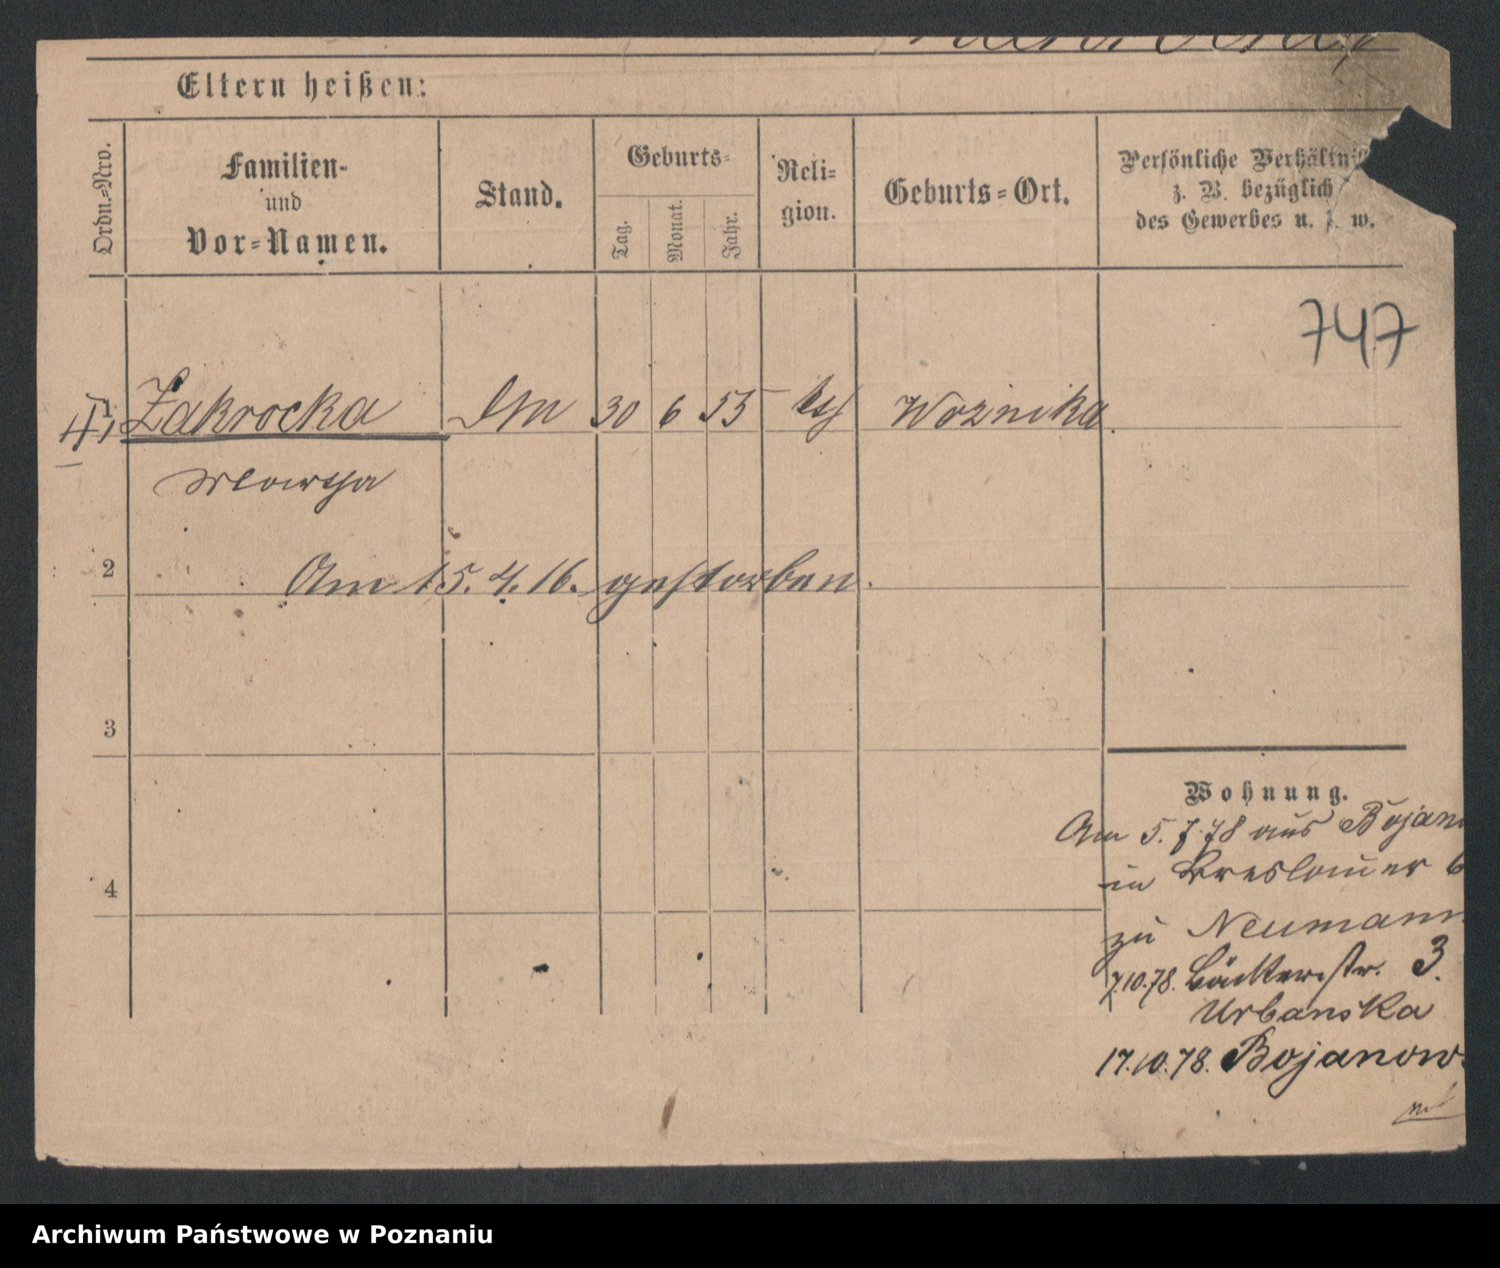 Eltern heißen:
Ordn.=Nro.
Familien-
und
Vor=Namen.
Stand.
Geburts=
Tag.
Monat.
Jahr.
Reli=
gion.
Geburts=Ort.
Persönliche Verhältnis
z. B. bezüglich
des Gewerbes u. s. w.
747
Zakrocka 30 6 55 Woznika
Martha
2
Am 15.4.16. gestorben.
3
Wohnung.
Am 5.7.78 aus Bojan
in Breslauer 6
4
zu Neumann
7.10.78. Bäckerstr. 3.
Urbanska
17.10.78. Bojanow
Archiwum Państwowe w Poznaniu